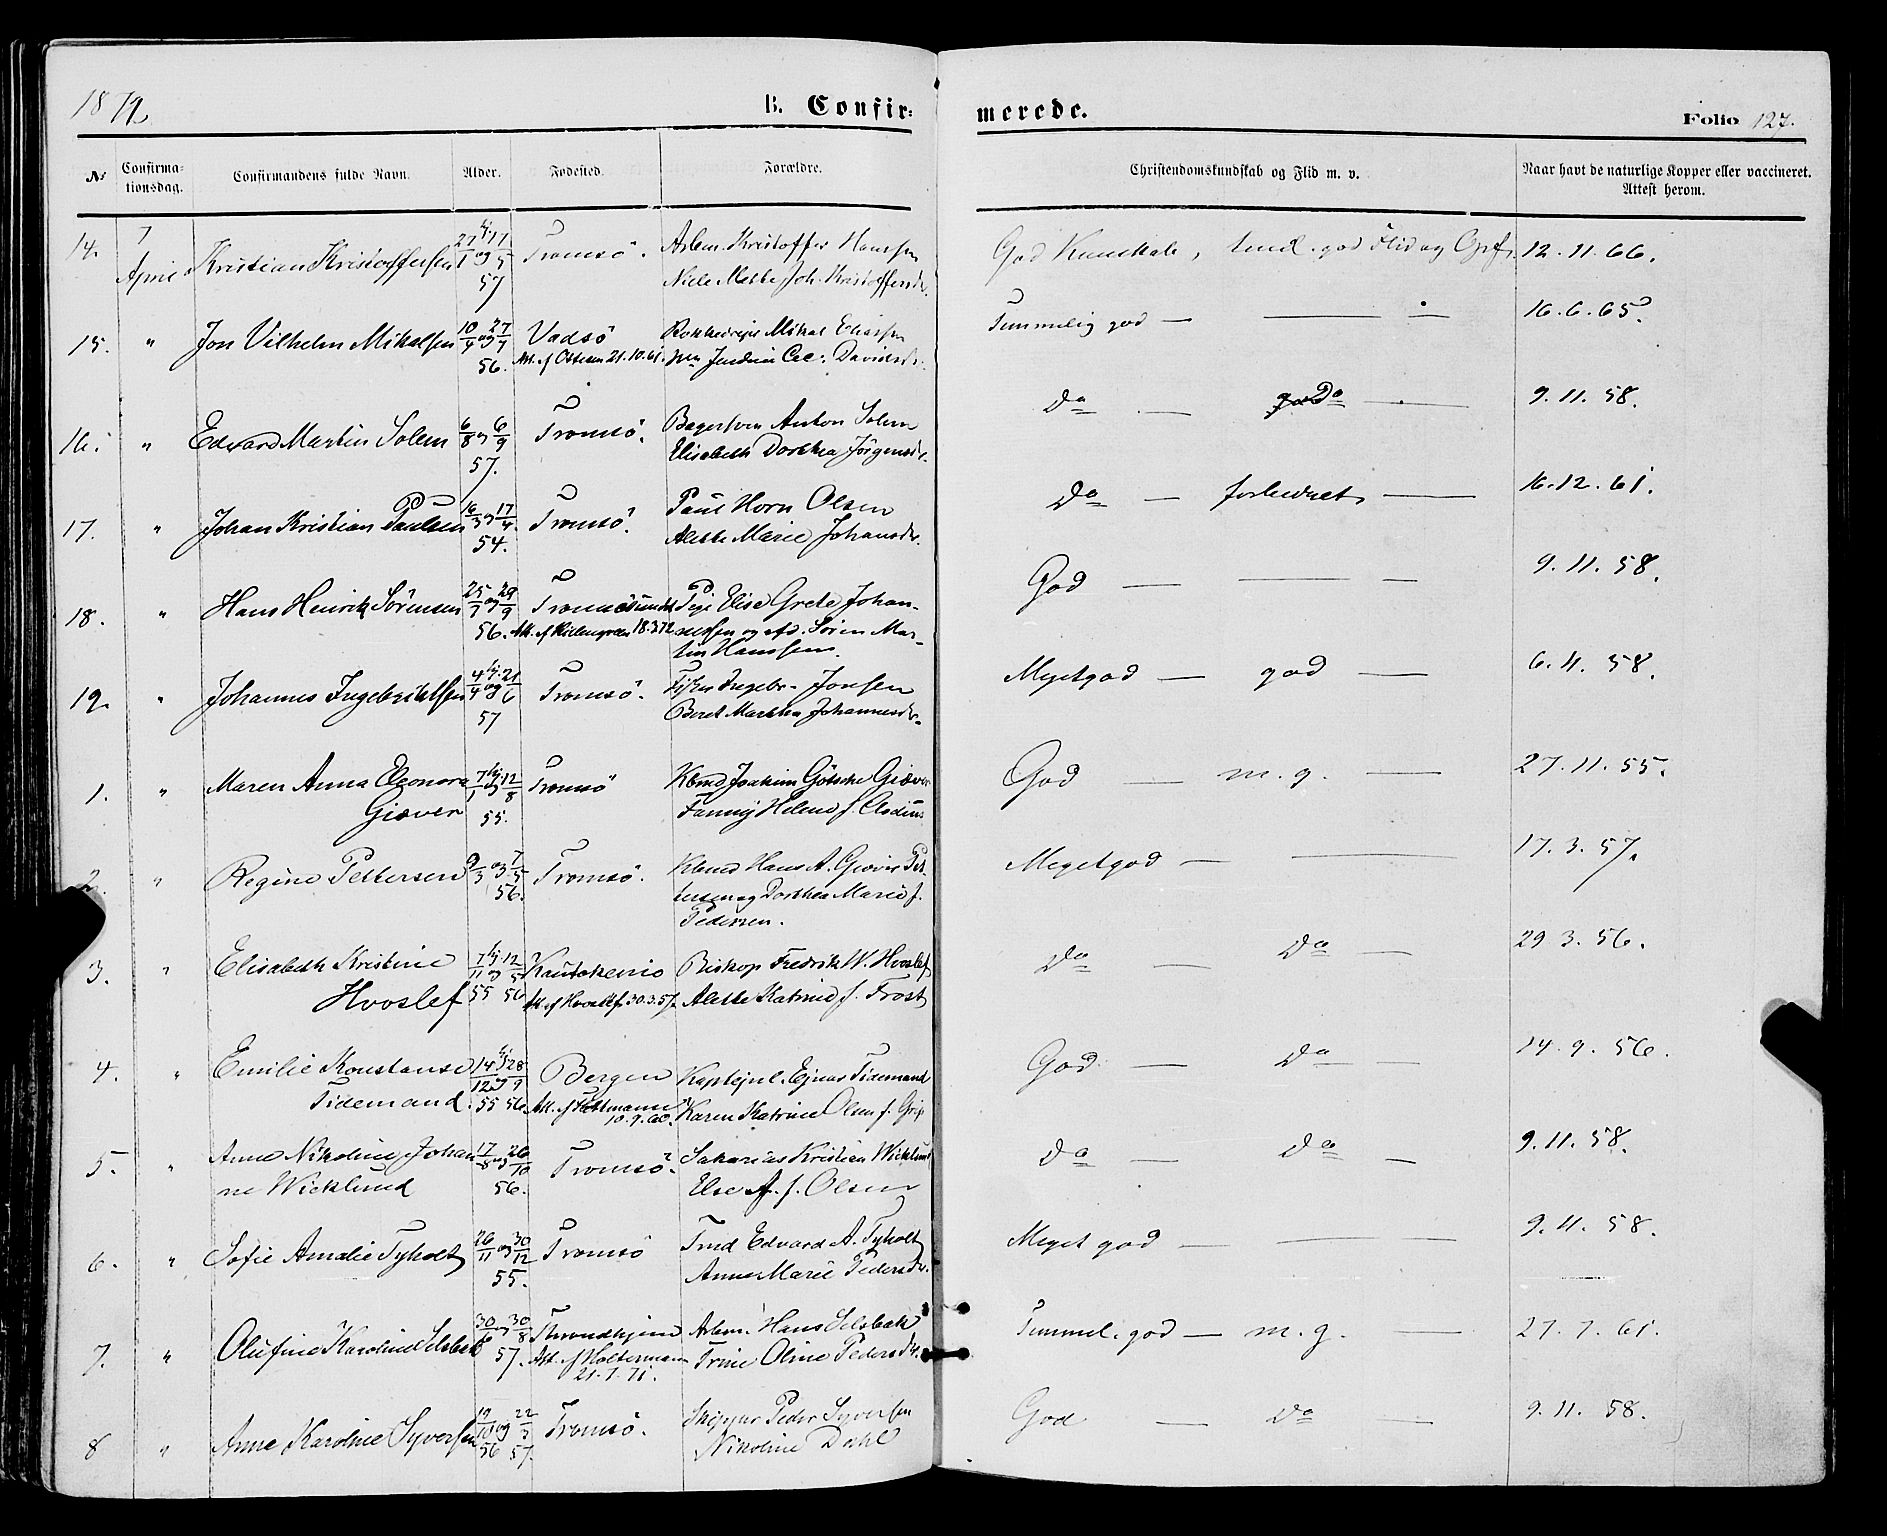 1872
B. Confir-
merede.
Folio 127.
No
Confirma-
tionsdag.
Confirmandens fulde Navn.
Alder.
Fødested.
Forældre.
Christendomskundskab og Flid m. v.
Naar havt de naturlige Kopper eller vaccineret.
Attest herom.
14. 7 April Kristian Kristoffersen 27/1 og 17/5 57 Tromsö.
Kristoffer Hanssen
Mette Joh. Kristoffersdr.
God Kundskab, god Flid og Opf. 12.11.66.
15. " Jon Vilhelm Mikalsen 10/4 og 27/7 56. Vadsö
Att. f Ottesen 21.10.61.
Mikal
Davidsdr.
Temmelig god — — — 16.6.65.
16. " Edvard Martin Solem 6/8 og 6/9 57. Tromsö.
Anton Solem
Elisabeth Dorthea Jörgensdr.
Do — Do — 9.11.58.
17. " Johan Kristian Paulsen 16/3 og 17/4 54. Tromsö.
Paul Horn Olsen
Alette Marie Johansdr.
Do — — 16.12.61.
18. " Hans Henrik Sörensen 25/7 og 29/9 56. Tromsösundet
18.3.72
Pige Elise Grete Johan-
nessen og Sören Mar-
tin Hanssen.
God — — — 9.11.58.
19. " Johannes Ingebrigtsen 4/4 og 21/6 57 Tromsö.
Ingebr. Jonsen
Beret Marthea Johannesdr.
Meget god — god — 6.11.58.
1. " Maren Anna Eleonora
Giæver 7/1 og 12/8 55. Tromsö
Kbmd Joakim Götsche Giæver
Fanny Helene f. Clodius
God — m. g. — 27.11.55.
2. " Regine Pettersen 9/3 og 7/5 56. Tromsö.
Kbmd Hans A. Giæver Pet-
tersen og Dorthea Marie f.
Pedersen.
Meget god — — 17.3.57.
3. " Elisabeth Kristine
Hvoslef 7/11 55 og 12/5 56 Kautokeino
Att. f Hvoslef 30.3.57.
Biskop Fredrik W. Hvoslef
Alette Katrine f. Frost
Do — Do — 29 3. 56.
4. " Emilie Konstanse
Tidemand. 14/12 55 og 28/9 56. Bergen
Kaptejnl. Ejnar Tidemand
Karen Katrine Olea f. Grip
God — Do — 14.9.56.
5. " Anne Nikoline Johan
ne Wicklund 17/8 og 26/10 56. Tromsö.
Sakarias Kristian Wicklund
Else A. f. Olsen
Do — Do — 9.11.58.
6. " Sofie Amalie Tyholt 26/11 og 30/12 55. Tromsö
Edvard A. Tyholt
Anne Marie Pedersdr.
Meget god — — 9.11.58.
7. " Olufine Karoline Selsbak 30/6 og 30/8 57. Throndhjem
Att. f Holtermann
21.7.71.
Arbm. Hans Selsbak
Trine Oline Pedersdr.
Temmel. god — m. g. — 27.7.61.
8 " Anne Karoline Syversen 19/10 56 og 22/3 57. Tromsö.
Skipper Peder Syversen
Nikoline Dahl
God — Do — 9.11.58.